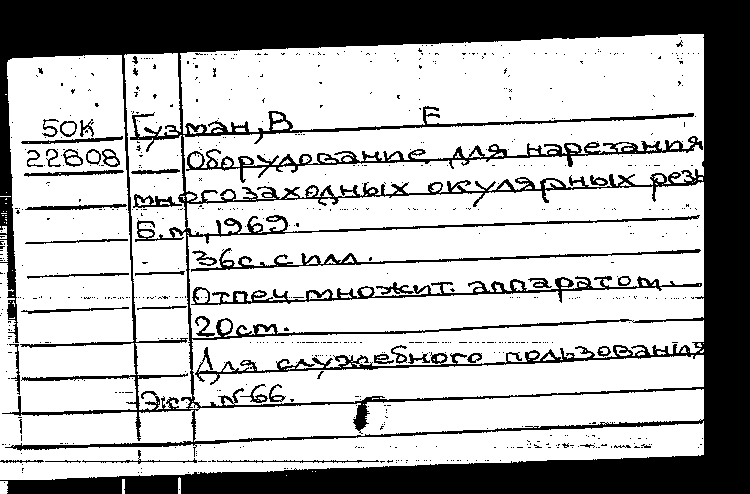 50К Гузман, В Е
22808 Оборудование для нарезания
многозаходных окулярных резь
Б.м., 1969.
36с. с илл.
Отпеч. множит. аппаратом.
20ст.
Для служебного пользования
Экз. № 66.